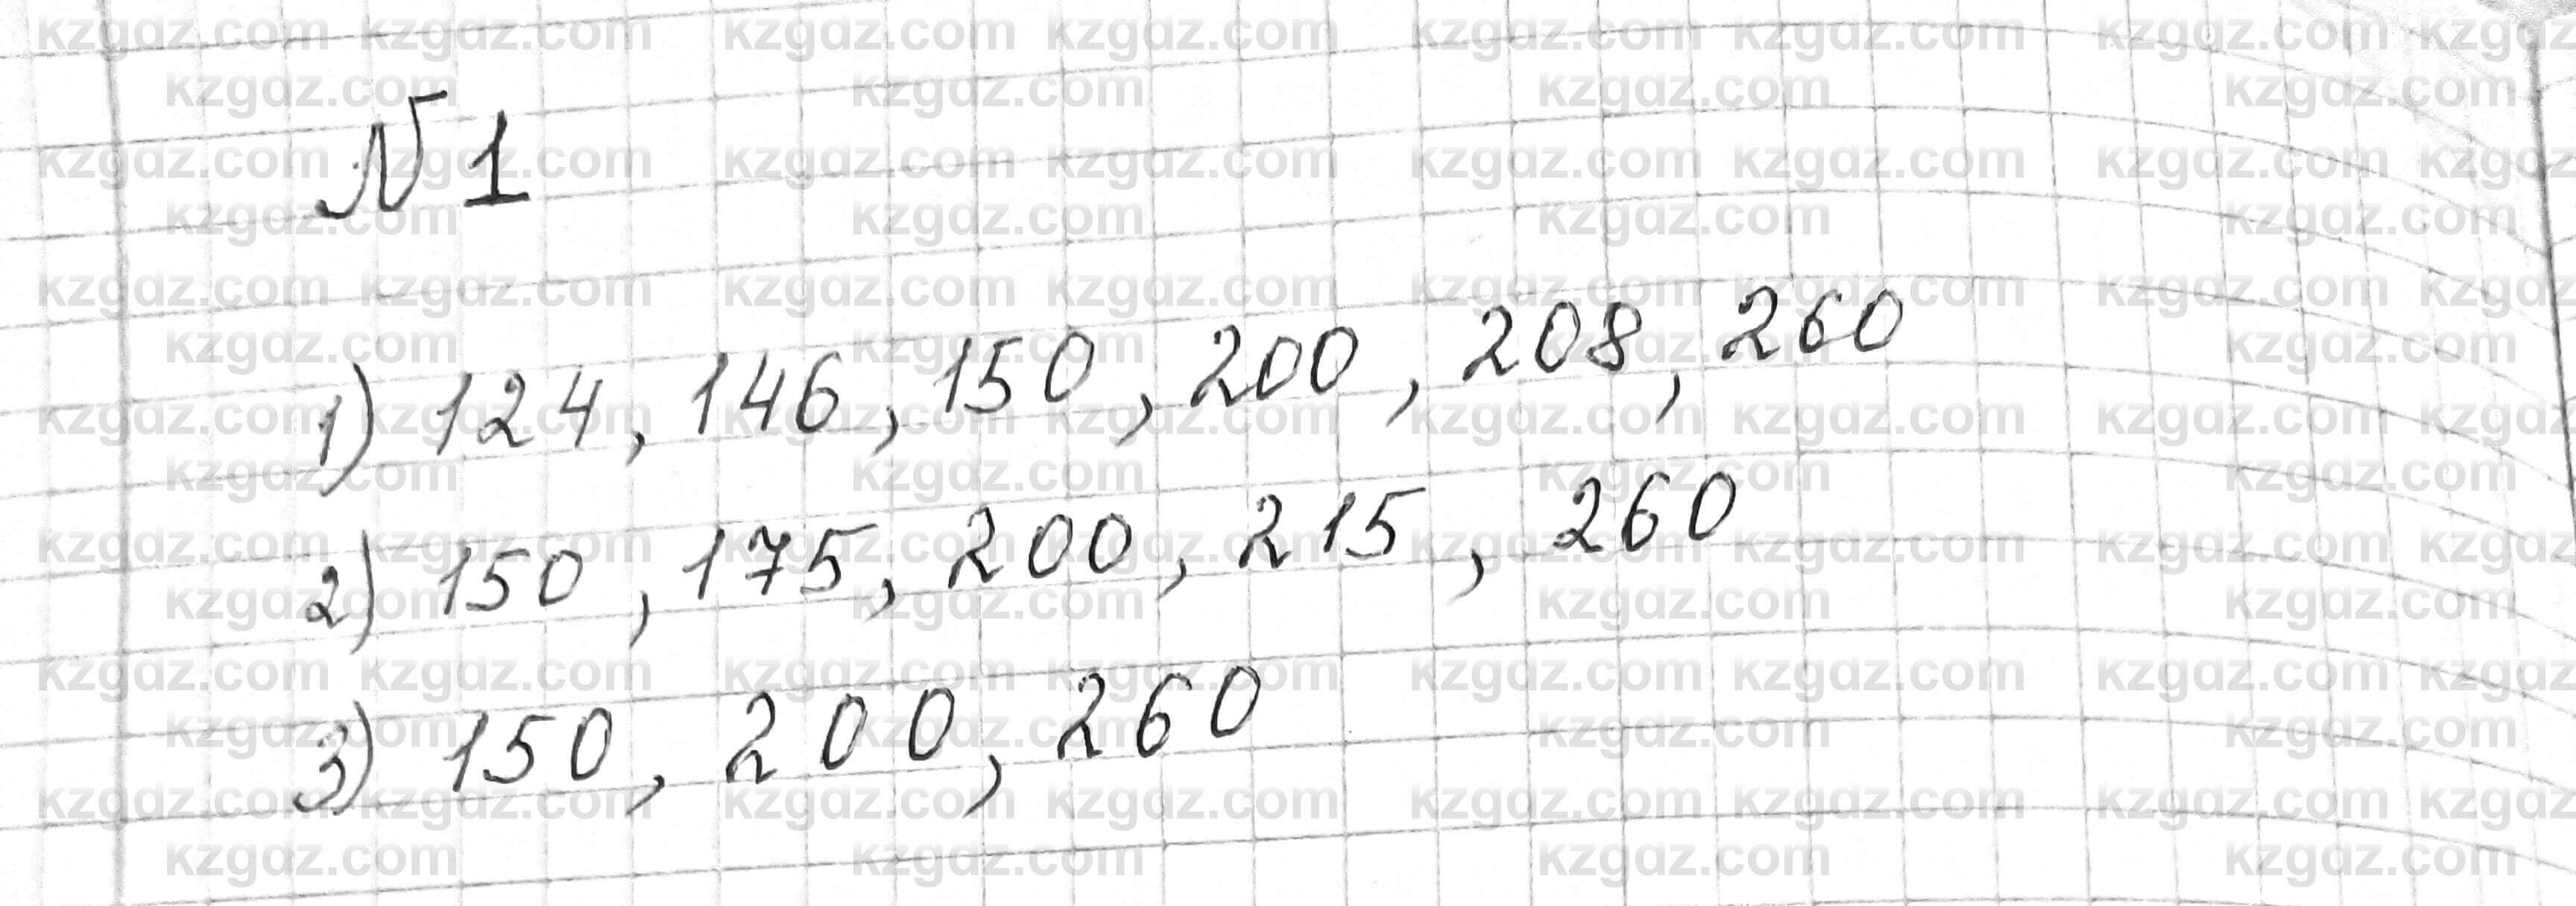 № 1
1) 124, 146, 150, 200, 208, 260
2) 150, 175, 200, 215, 260
3) 150, 200, 260